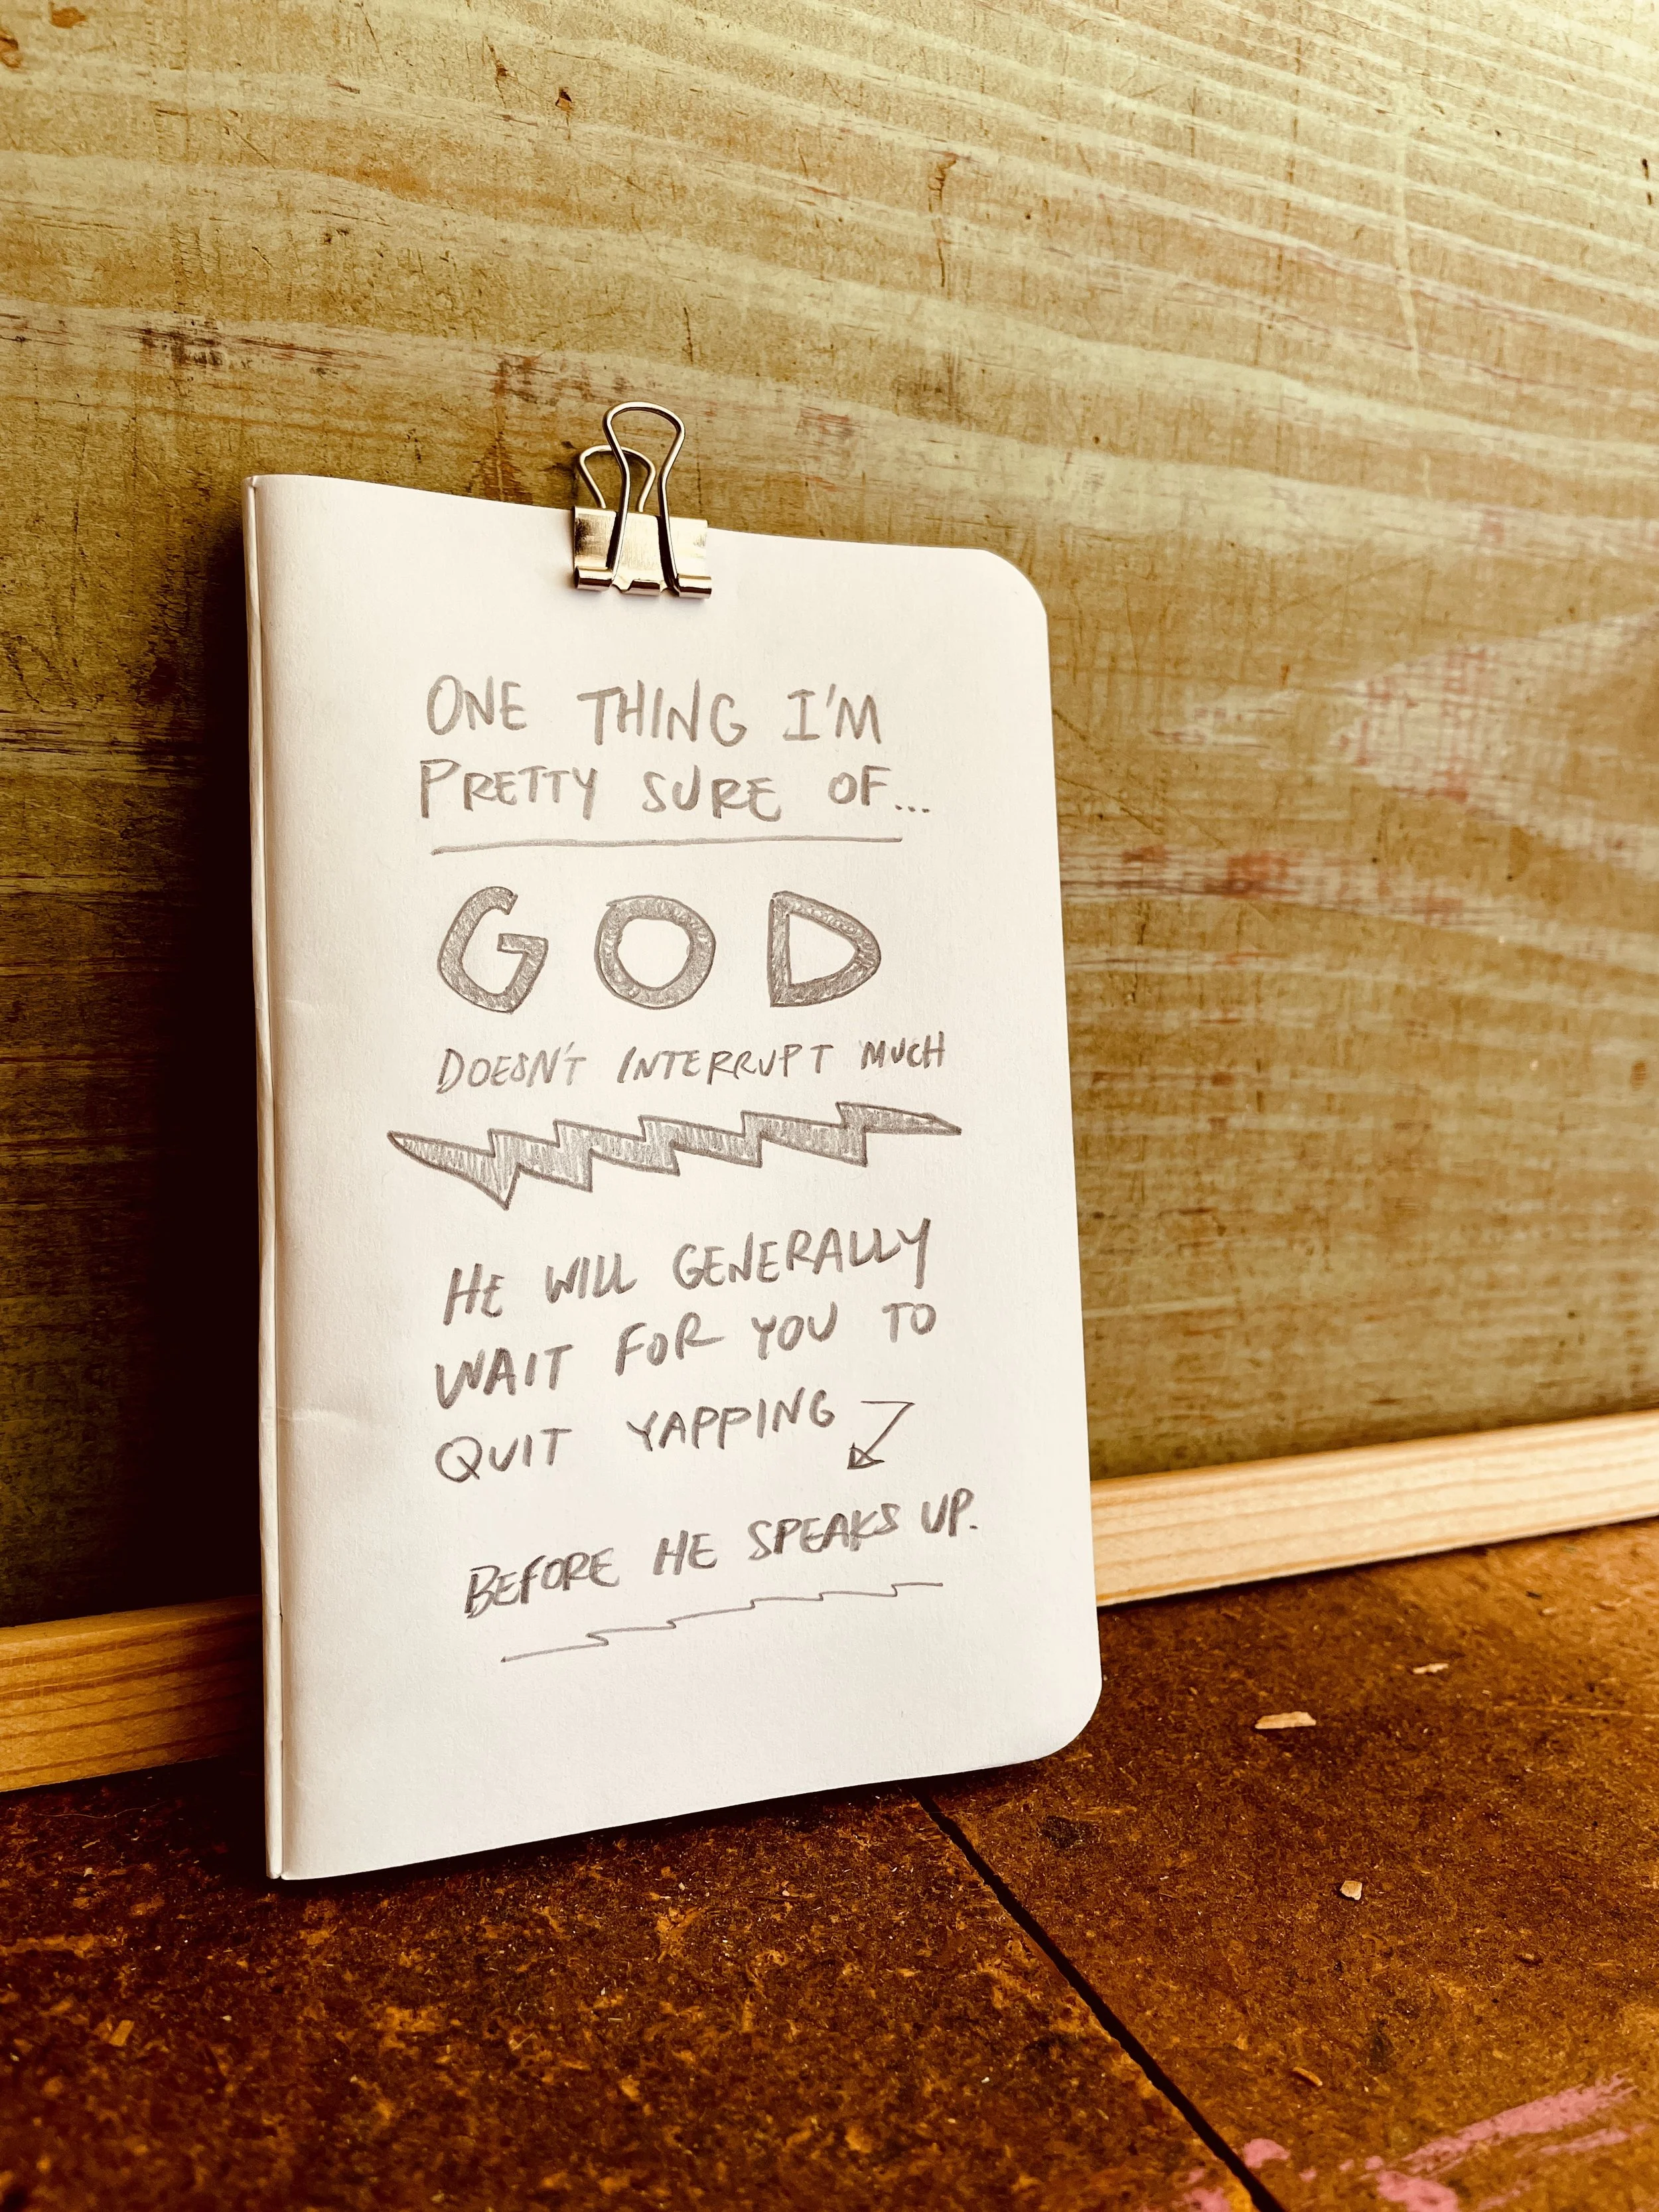 ONE THING I'M
PRETTY SURE OF...
GOD
DOESN'T INTERRUPT MUCH
HE WILL GENERALLY
WAIT FOR YOU TO
QUIT YAPPING
BEFORE HE SPEAKS UP.